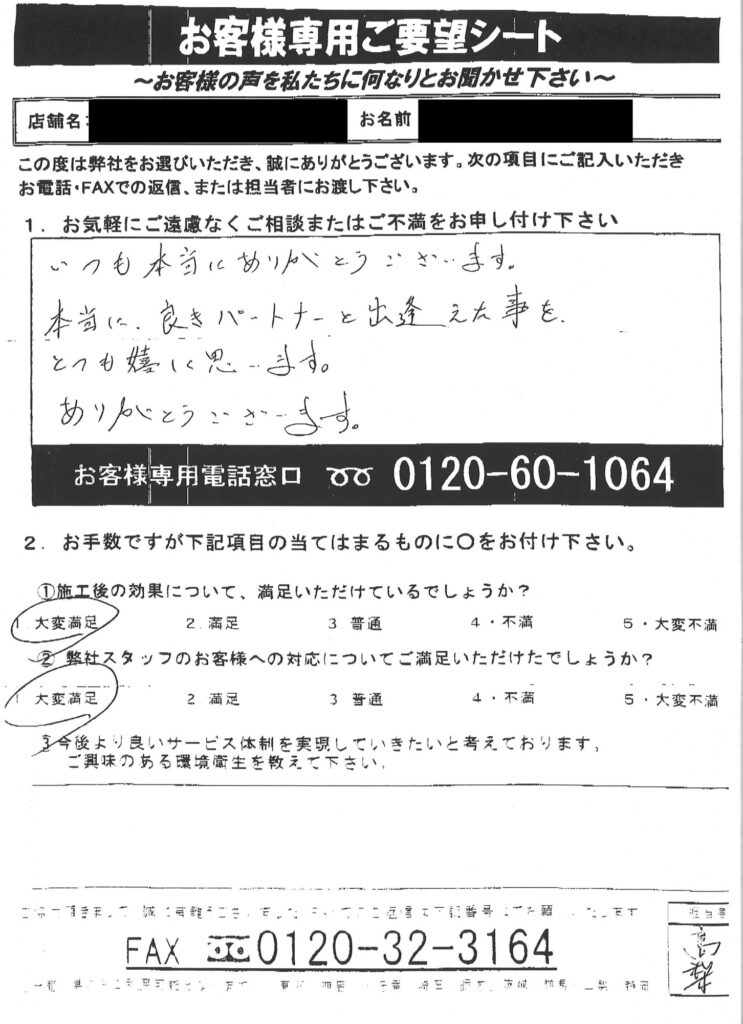 お客様専用ご要望シート
～お客様の声を私たちに何なりとお聞かせ下さい～
店舗名: お名前
この度は弊社をお選びいただき、誠にありがとうございます。次の項目にご記入いただき
お電話・FAXでの返信、または担当者にお渡し下さい。
1．お気軽にご遠慮なくご相談またはご不満をお申し付け下さい
いつも本当にありがとうございます。
本当に、良きパートナーと出逢えた事を、
とても嬉しく思います。
ありがとうございます。
お客様専用電話窓口 0120-60-1064
2．お手数ですが下記項目の当てはまるものに〇をお付け下さい。
①施工後の効果について、満足いただけているでしょうか?
1 大変満足 2.満足 3 普通 4・不満 5・大変不満
② 弊社スタッフのお客様への対応についてご満足いただけたでしょうか?
1 大変満足 2 満足 3 普通 4・不満 5・大変不満
③今後より良いサービス体制を実現していきたいと考えております。
ご興味のある環境衛生を教えて下さい.
担当者
FAX 0120-32-3164